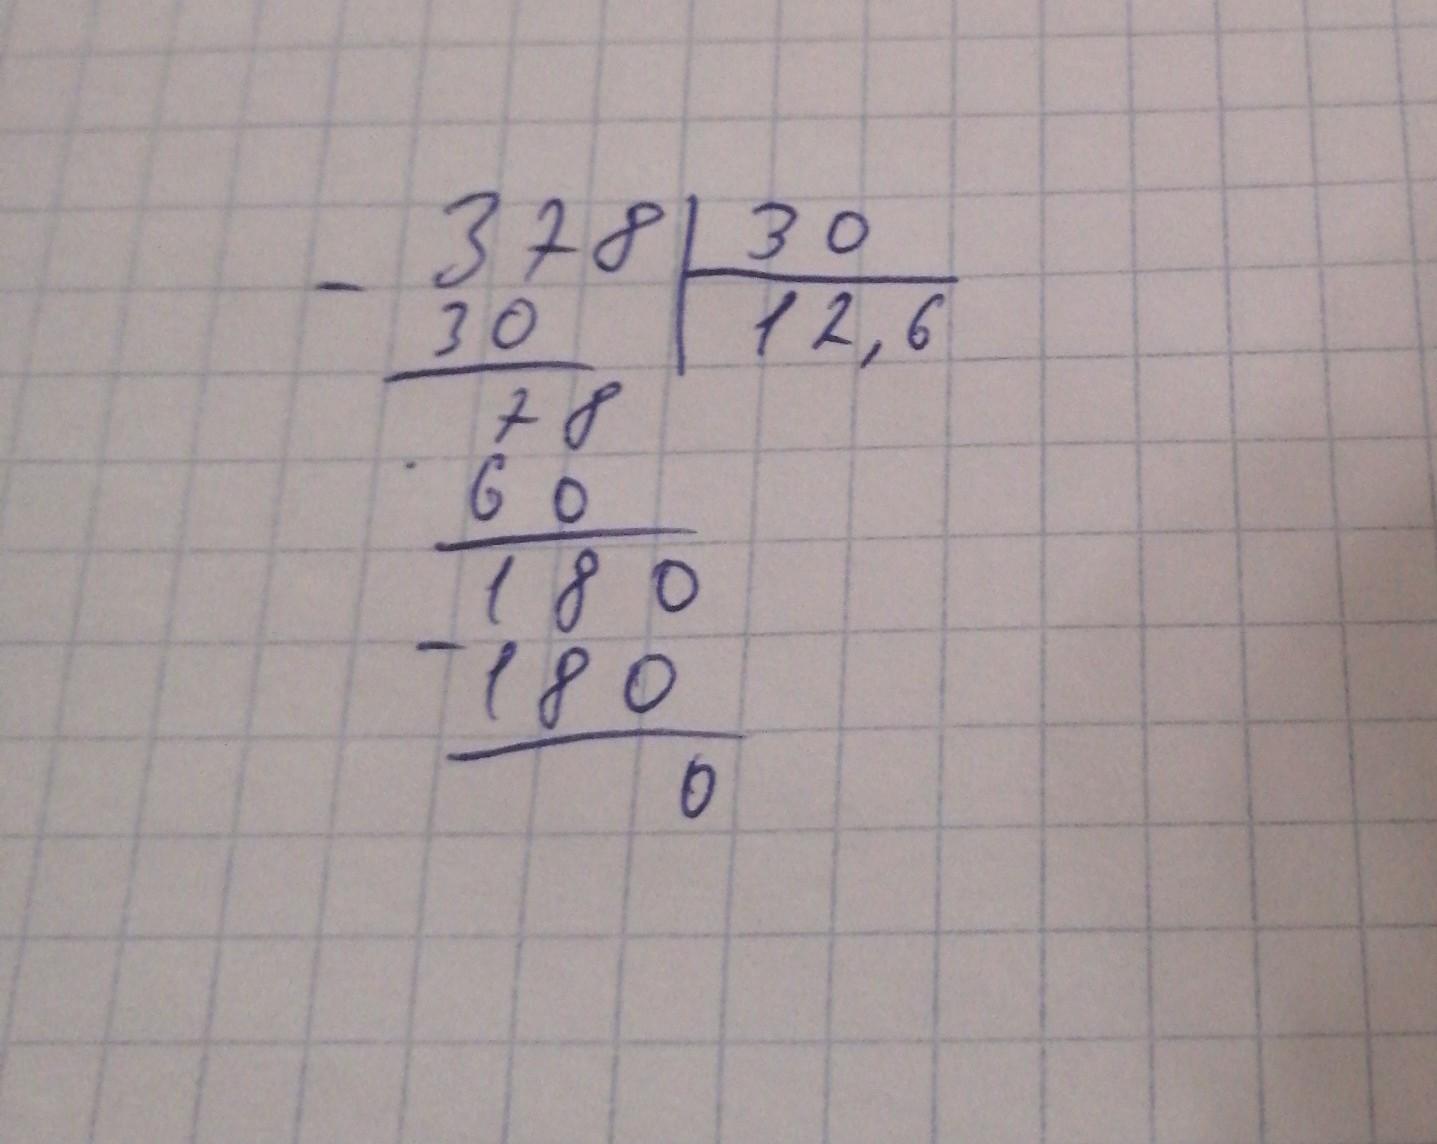 378 30
- 30 12,6
78
60
180
- 180
0